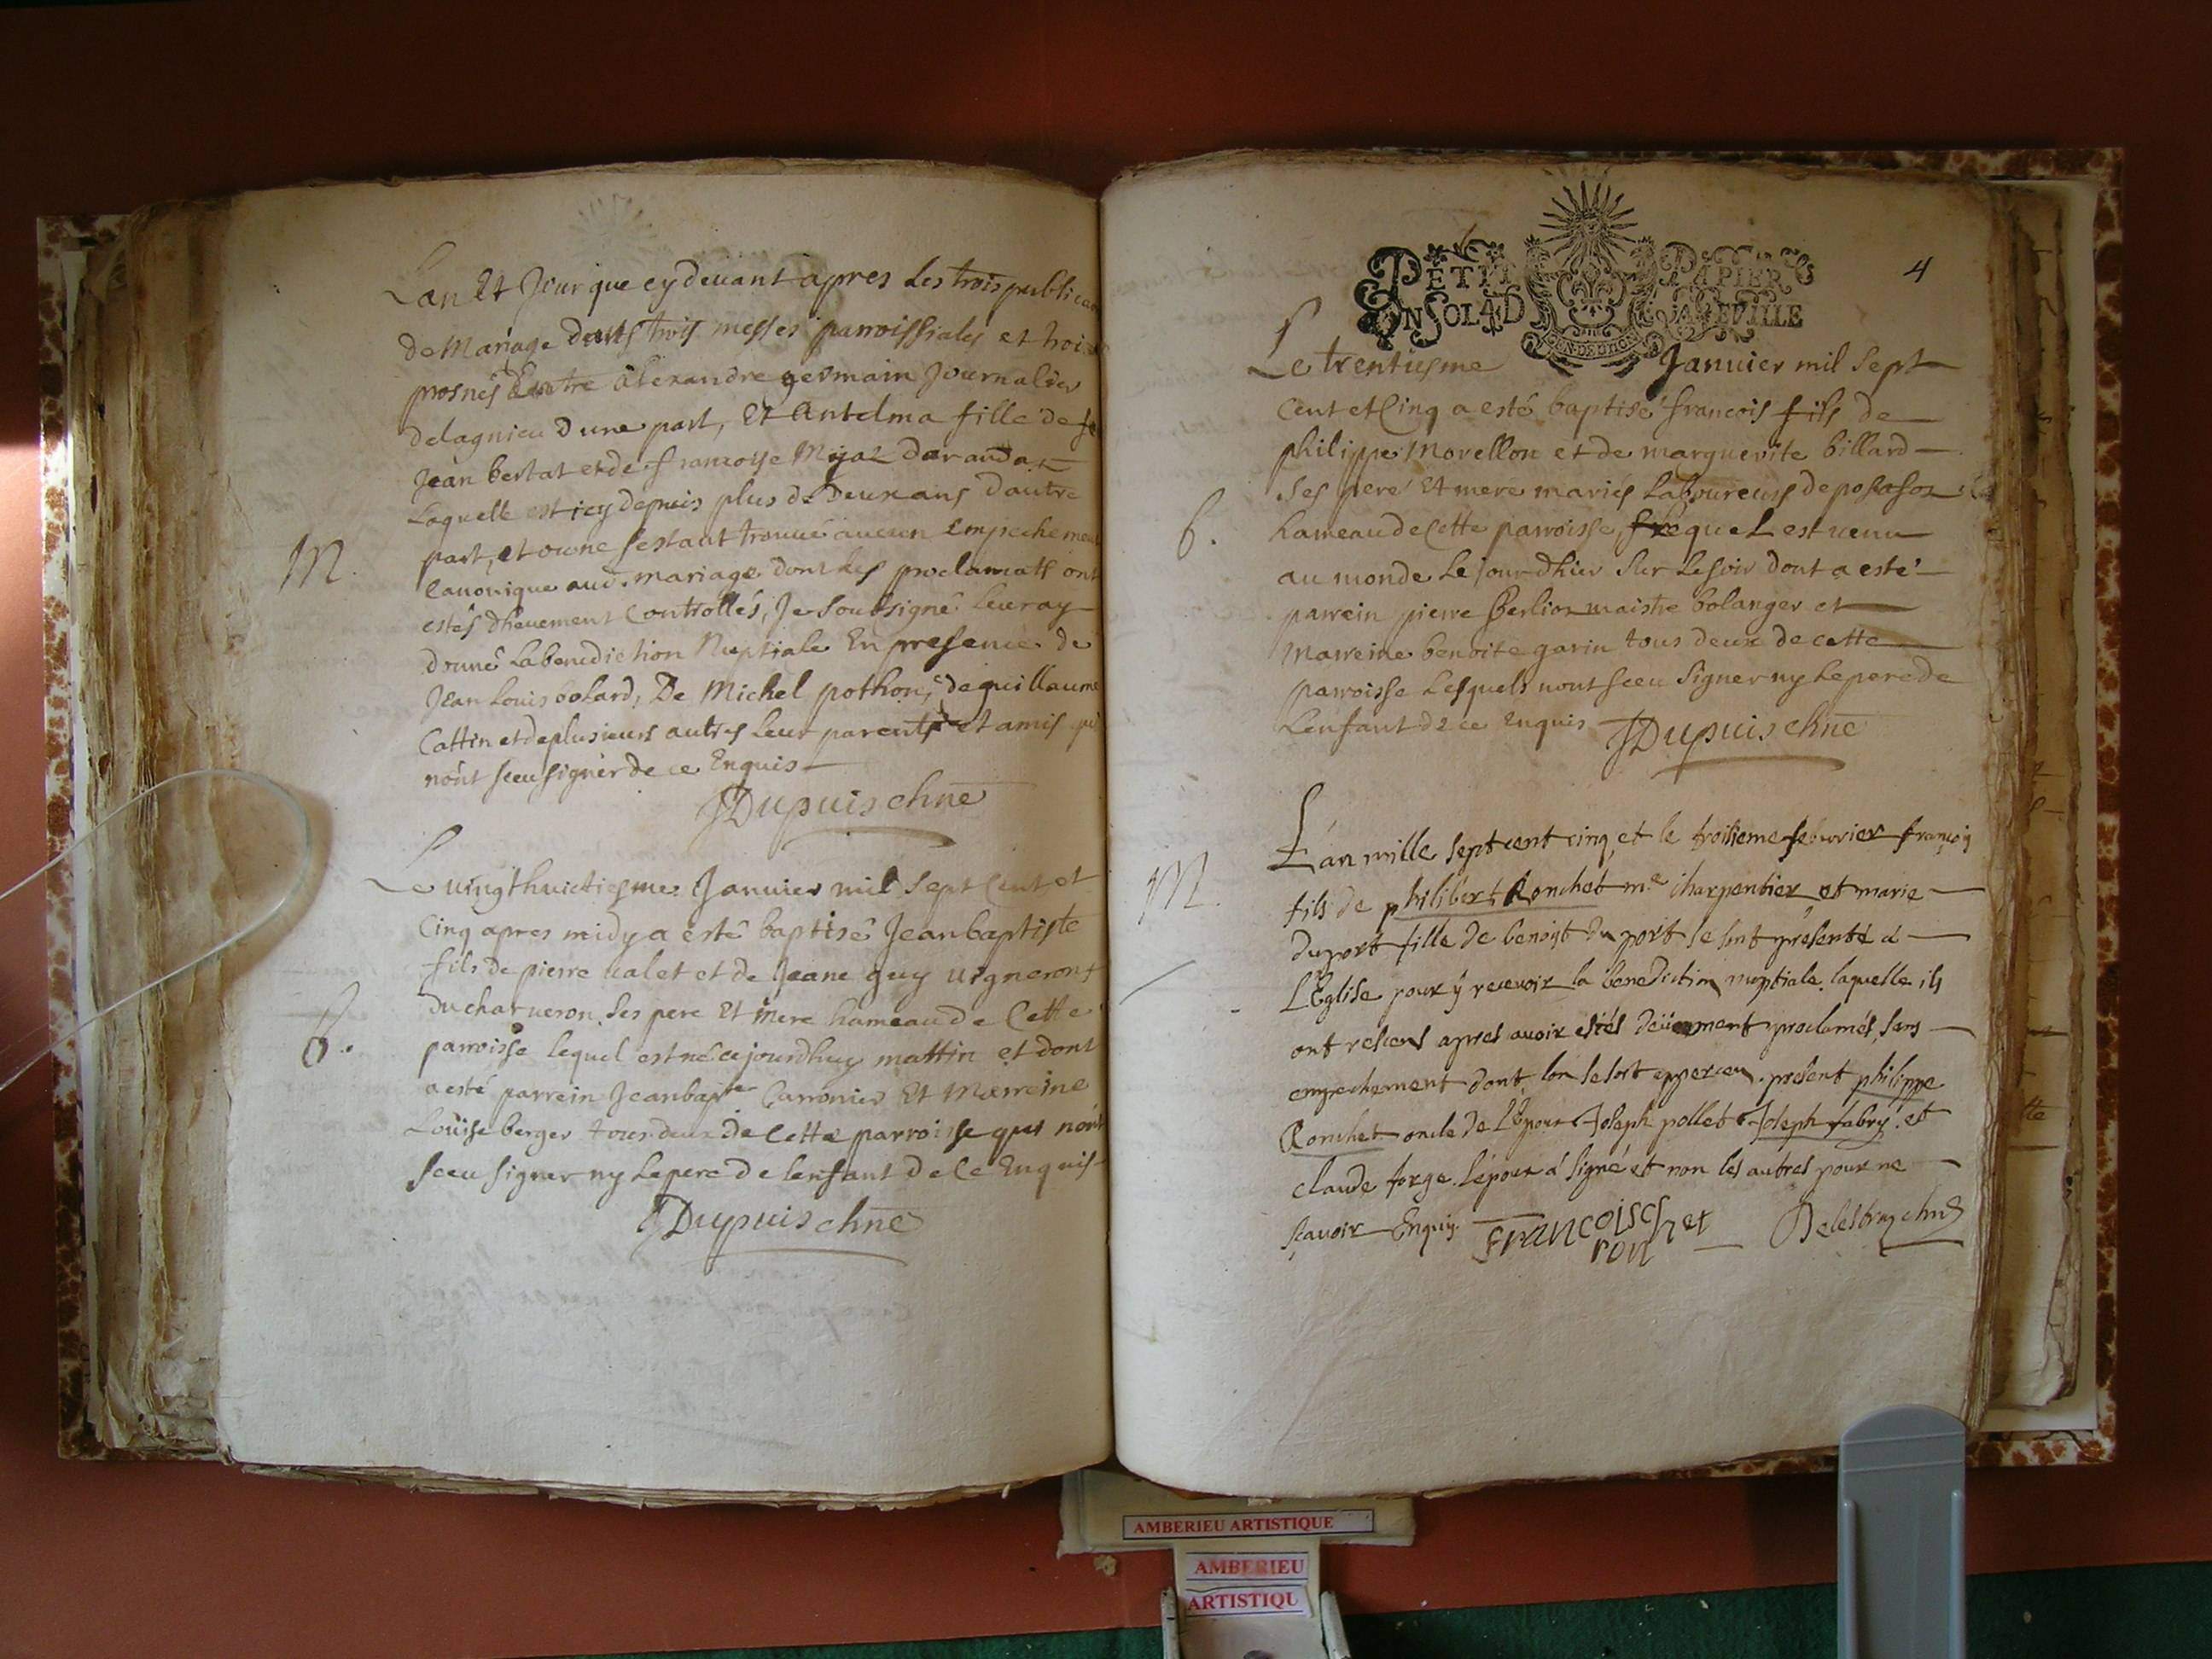 Lan Et Jour que cy deuant apres Les trois publica
de Mariage dans trois messes parroissiales et troi
prosnes Entre alexandre germain Journalier
delagnieu d une part, Et Antelma fille de fe
Jean bertat et de francoise Myaz darandaz
Laquelle est icy depuis plus de Deux ans dautre
part, et ne sestant trouué aucun Empechement
M.
Canonique aud. mariage dont les proclamatt ont
estés dheuement Controllés, Je soubsigné leur ay
donné La benediction Nuptiale En presence de
Jean Louis bolard, De Michel pothon, de guillaume
Cattin et de plusieurs autres leur parents et amis qui
nont sceu signer de ce Enquis
JDupuis chne
Le uingthuictiesme Januier mil Sept Cent et
Cinq apres midy a esté baptisé Jean baptiste
fils de pierre ualet et de Jeane guy uigneront
du charueron ses pere Et mere hameau de Cette
B.
parroisse lequel est né ce jourdhuy mattin et dont
a esté parrein Jean bapte Carronier Et Marreine
Louise berger tous deux de Cette parroisse qui nont
sceu signer ny Le pere de lenfant de Ce Enquis
JDupuis chne
4
PETIT PAPIER
EN SOL 4 D LA FEVILLE
Le trentiesme Januier mil sept
Cent et Cinq a esté baptisé francois fils de
philippe Morellon et de marguerite billard
ses pere Et mere mariés Laboureurs de posafoz
B.
hameau de Cette parroisse, lequel est uenu
au monde Le jour dhier sur Le soir dont a esté
parrein pierre Berlioz maistre bolanger et
Marreine benoite garin tous deux de cette
parroisse Lesquels nont sceu signer ny Le pere de
Lenfant de ce Enquis JDupuis chne
L'an mille sept cent cinq et le troisieme februrier françois
M.
fils de philibert Ronchet me charpentier et marie
duport fille de benoist du port se sont presenté a
L'Eglise pour y receuoir la benediction nuptiale laquelle ils
ont resceus apres auoir estés deüement proclamés, sans
empechement dont lon se soit apperceu, present philippe
Ronchet oncle de l'Epoux Joseph pollet Joseph fabry et
claude forge. l'epoux a signé et non les autres pour ne
sçauoir Enquis. FRANCOIS ChEt
ron
Delesbruy chne
AMBERIEU ARTISTIQUE
AMBERIEU
ARTISTIQU